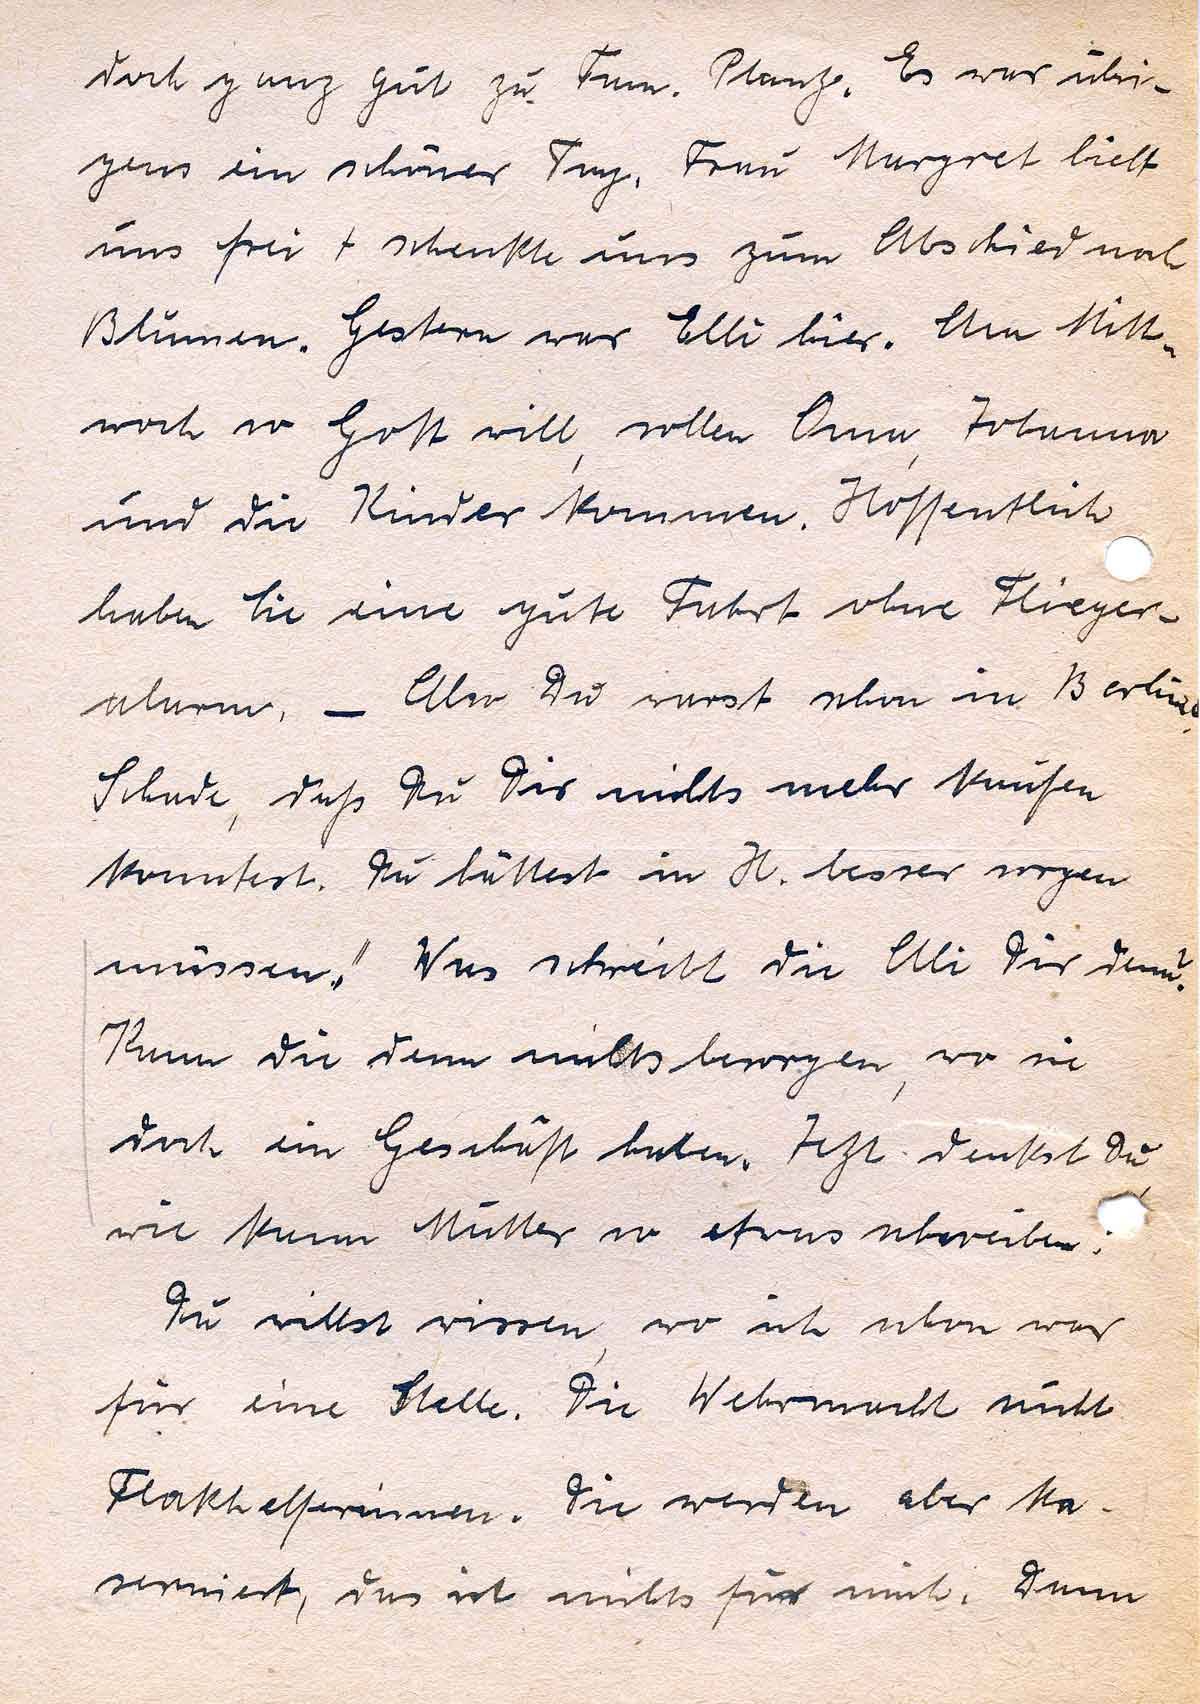 doch ganz gut zu Fam. Plantz. Es war übri-
gens ein schöner Tag. Frau Margret hielt
uns frei + schenkte uns zum Abschied noch
Blumen. Gestern war Elli hier. Am Mitt-
woch so Gott will, sollen Oma, Johanna
und die Kinder kommen. Hoffentlich
haben Sie eine gute Fahrt ohne Flieger-
alarm. — Also Du warst schon in Berlin.
Schade, daß Du Dir nichts mehr kaufen
konntest. Du hättest in H. besser sorgen
müssen!! Was schreibt die Elli Dir denn?
Kann die denn nichts besorgen, wo sie
doch ein Geschäft haben. Jetzt denkst Du,
wie kann Mutter so etwas schreiben.
Du willst wissen, wo ich schon war
für eine Stelle. Die Wehrmacht sucht
Flakhelferinnen. Die werden aber ka-
serniert, das ist nichts für mich. Dann